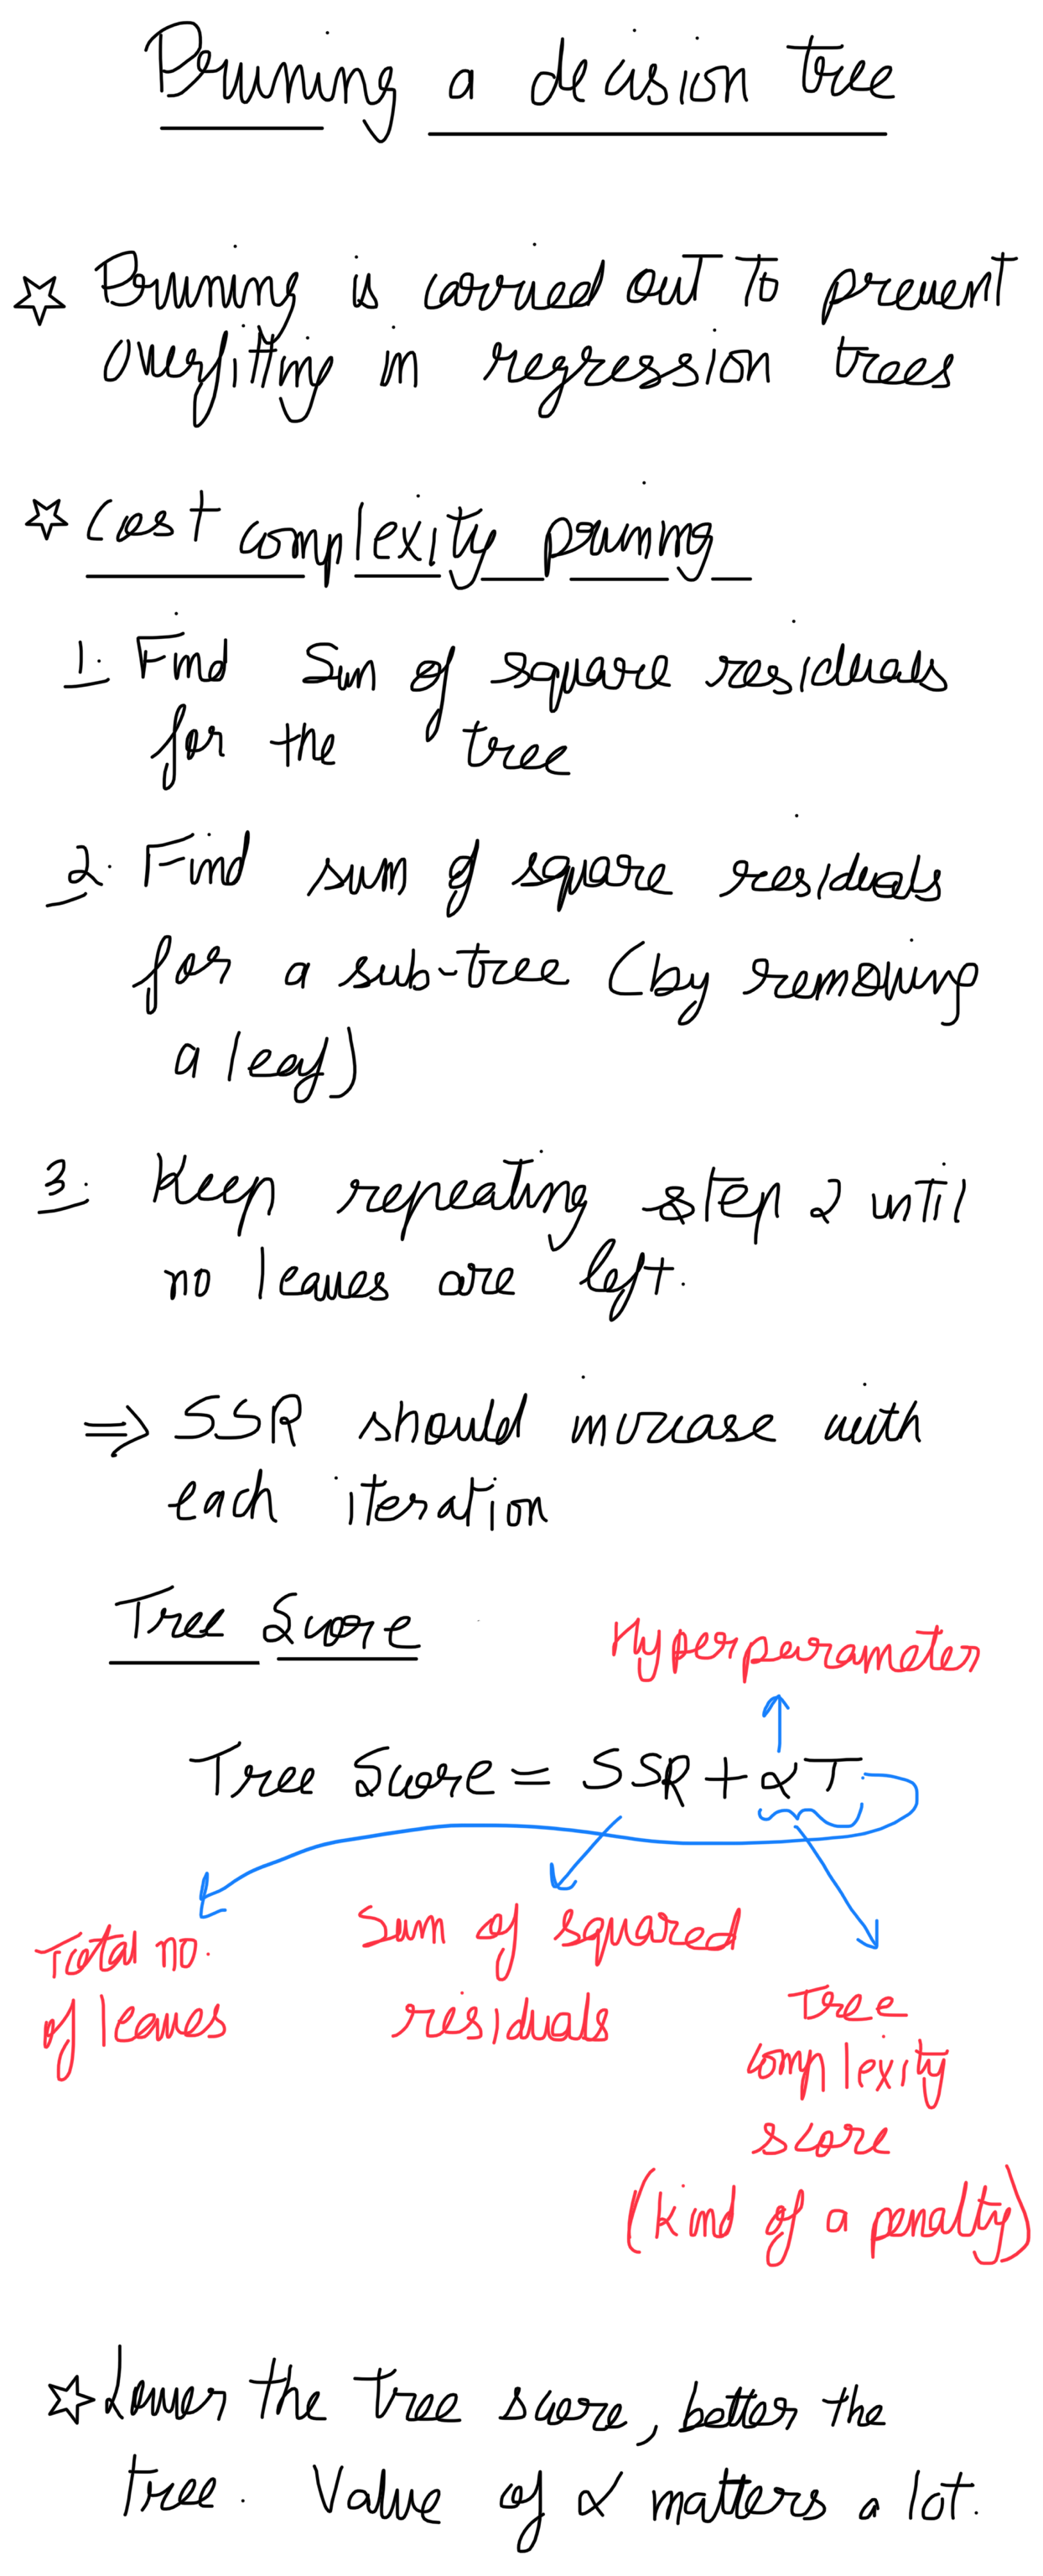 Pruning a decision tree
☆ Pruning is carried out to prevent
overfitting in regression trees
☆ Cost complexity pruning
1. Find Sum of square residuals
for the tree
2. Find sum of square residuals
for a sub-tree (by removing
a leaf)
3. Keep repeating step 2 until
no leaves are left.
⇒ SSR should increase with
each iteration
Tree Score
Hyperparameter
Tree Score = SSR + αT
Total no.
of leaves
Sum of squared
residuals
Tree
complexity
score
(kind of a penalty)
☆ Lower the tree score, better the
tree. Value of α matters a lot.